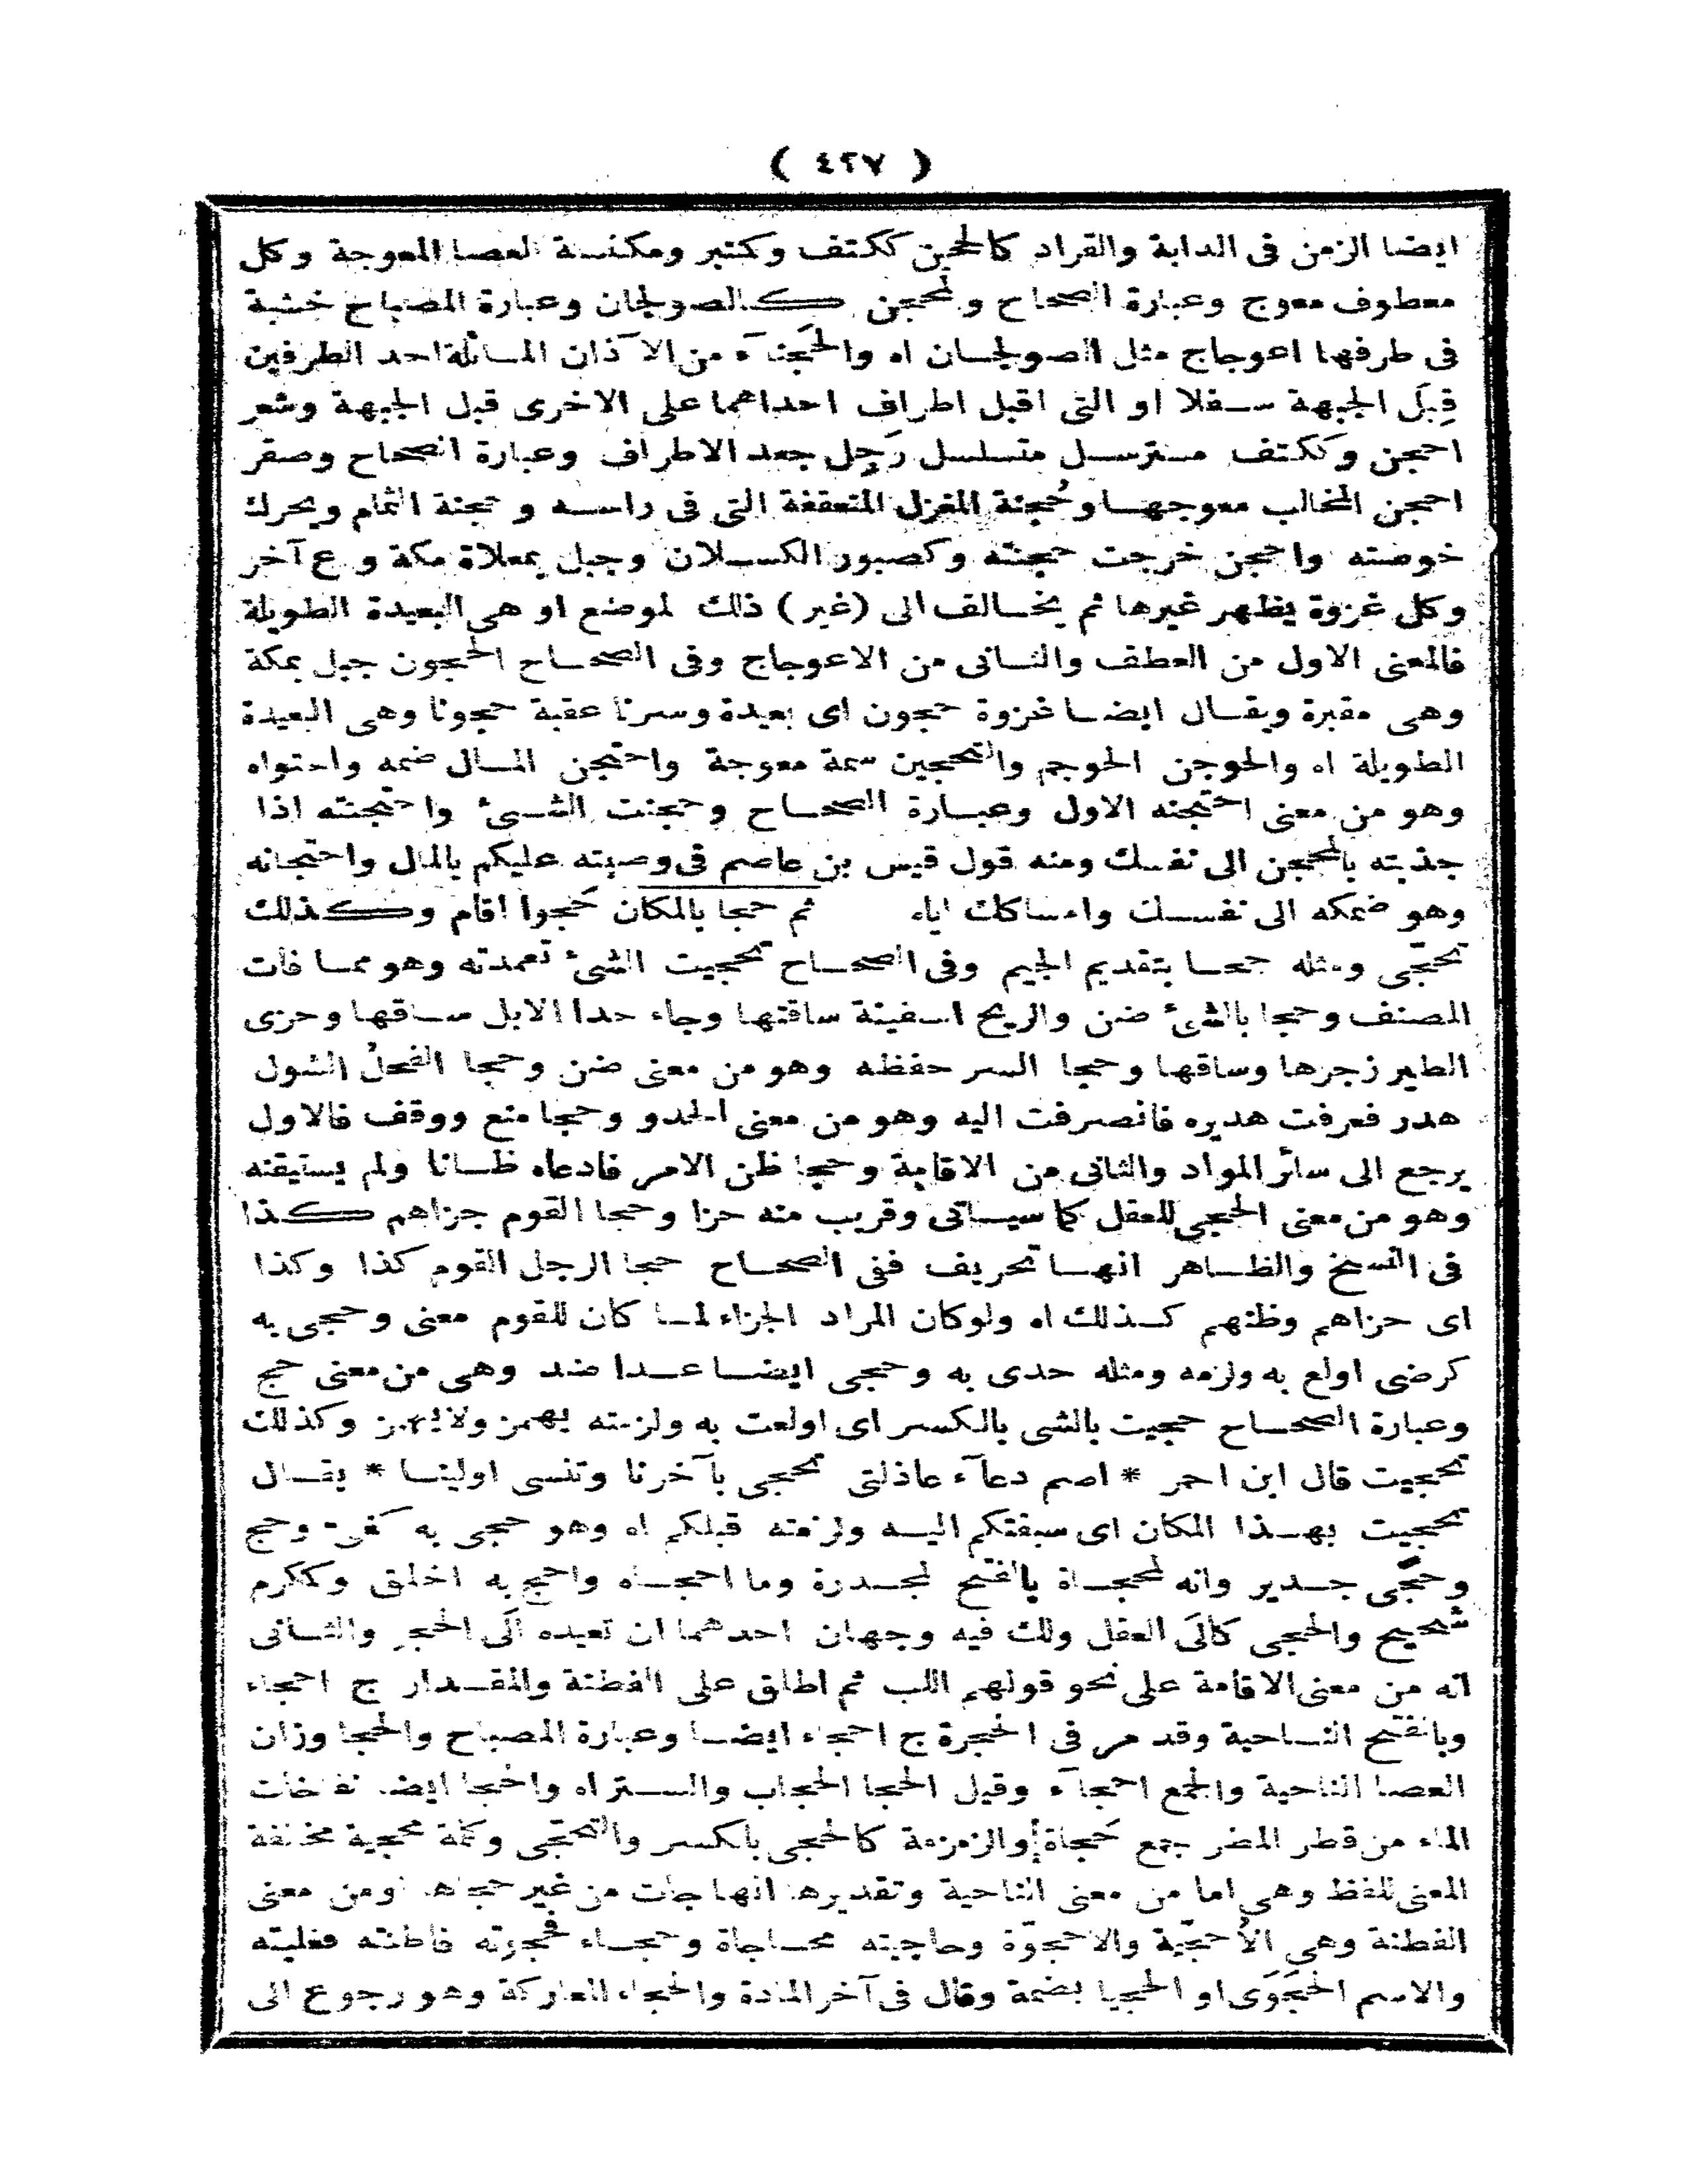 ( ٤٢٧ )
ايضا الزمن فى الدابة والقراد كالحجن ككتف وكنبر ومكنسة العصا المعوجة وكل
معطوف معوج وعبارة الصحاح والمحجن كالصولجان وعبارة المصباح خشبة
فى طرفها اعوجاج مثل الصولجان اه والحَجناَء من الاَذان المائلة احد الطرفين
قِبَل الجبهة سفلا او التى اقبل اطراف احداهما على الاخرى قبل الجبهة وشعر
احجن وككتف مسترسل متسلسل رَجِل جعد الاطراف وعبارة الصحاح وصقر
احجن المخالب معوجها وحُجنة المغزل المتعقفة التى فى راسه وحجنة الثمام ويحرك
خوصته واحجن خرجت حجنته وكصبور الكسلان وجبل بمعلاة مكة وع آخر
وكل غزوة يظهر غيرها ثم يخالف الى (غير) ذلك لموضع او هى البعيدة الطويلة
فالمعنى الاول من العطف والثانى من الاعوجاج وفى الصحاح الحجون جبل بمكة
وهى مقبرة ويقال ايضا غزوة حجون اى بعيدة وسرنا عقبة حجونا وهى البعيدة
الطويلة اه والحوجن الحوجم والتحجين سمة معوجة واحتجن المال ضمه واحتواه
وهو من معنى احتجنه الاول وعبارة الصحاح وحجنت الشئ واحتجنته اذا
جذبته بالمحجن الى نفسك ومنه قول قيس بن عاصم فى وصيته عليكم بالمال واحتجانه
وهو ضمكه الى نفسك وامساكك اياه ثم حجا بالمكان حَجوا اقام وكذلك
تحجّى ومثله جحا بتقديم الجيم وفى الصحاح تحجيت الشئ تعمدته وهو مما فات
المصنف وحجا بالشئ ضن والريح السفينة ساقتها وجاء حدا الابل ساقها وحزى
الطير زجرها وساقها وحجا السر حفظه وهو من معنى ضن وحجا الفحلُ الشول
هدر فعرفت هديره فانصرفت اليه وهو من معنى الحدو وحجا منع ووقف فالاول
يرجع الى سائر المواد والثانى من الاقامة وحجا ظن الامر فادعاه ظانا ولم يستيقنه
وهو من معنى الحجى للعقل كما سياتى وقريب منه حزا وحجا القوم جزاهم كذا
فى النسخ والظاهر انها تحريف ففى الصحاح حجا الرجل القوم كذا وكذا
اى حزاهم وظنهم كذلك اه ولوكان المراد الجزاء لما كان للقوم معنى وحجى به
كرضى اولع به ولزمه ومثله حدى به وحجى ايضا عدا ضد وهى من معنى حج
وعبارة الصحاح حجيت بالشى بالكسر اى اولعت به ولزمته يهمز ولايهمز وكذلك
تحجيت قال ابن احمر * اصم دعاَء عاذلتى تحجى بآخرنا وتنسى اولينا * يقال
تحجيت بهذا المكان اى سبقتكم اليه ولزمته قبلكم اه وهو حجى به كغى وحج
وحجًى جدير وانه لمحجاة بالفتح لمجدرة وما احجاه واحج به اخلق وككرم
شحيح والحجى كالَى العقل ولك فيه وجهان احدهما ان تعيده الَى الحجر والثانى
انه من معنى الاقامة على نحو قولهم اللب ثم اطلق على الفطنة والمقدار ج احجاء
وبالفتح الناحية وقد مر فى الحجرة ج احجاء ايضا وعبارة المصباح والحجا وزان
العصا الناحية والجمع احجاَء وقيل الحجا الحجاب والستر اه والحجا ايضا نفاخات
الماء من قطر المطر جمع حَجاة والزمزمة كالحجى بالكسر والتحجّى وكلمة محجية مخالفة
المعنى للفظ وهى اما من معنى الناحية وتقديرها انها جات من غير حجاها اومن معنى
الفطنة وهى الاُحجيّة والاحجوّة وحاجيته محاجاة وحجاء فحجوته فاطنته فغلبته
والاسم الحَجوَى او الحجيا بضمة وقال فى آخر المادة والحجاء المعاركة وهو رجوع الى